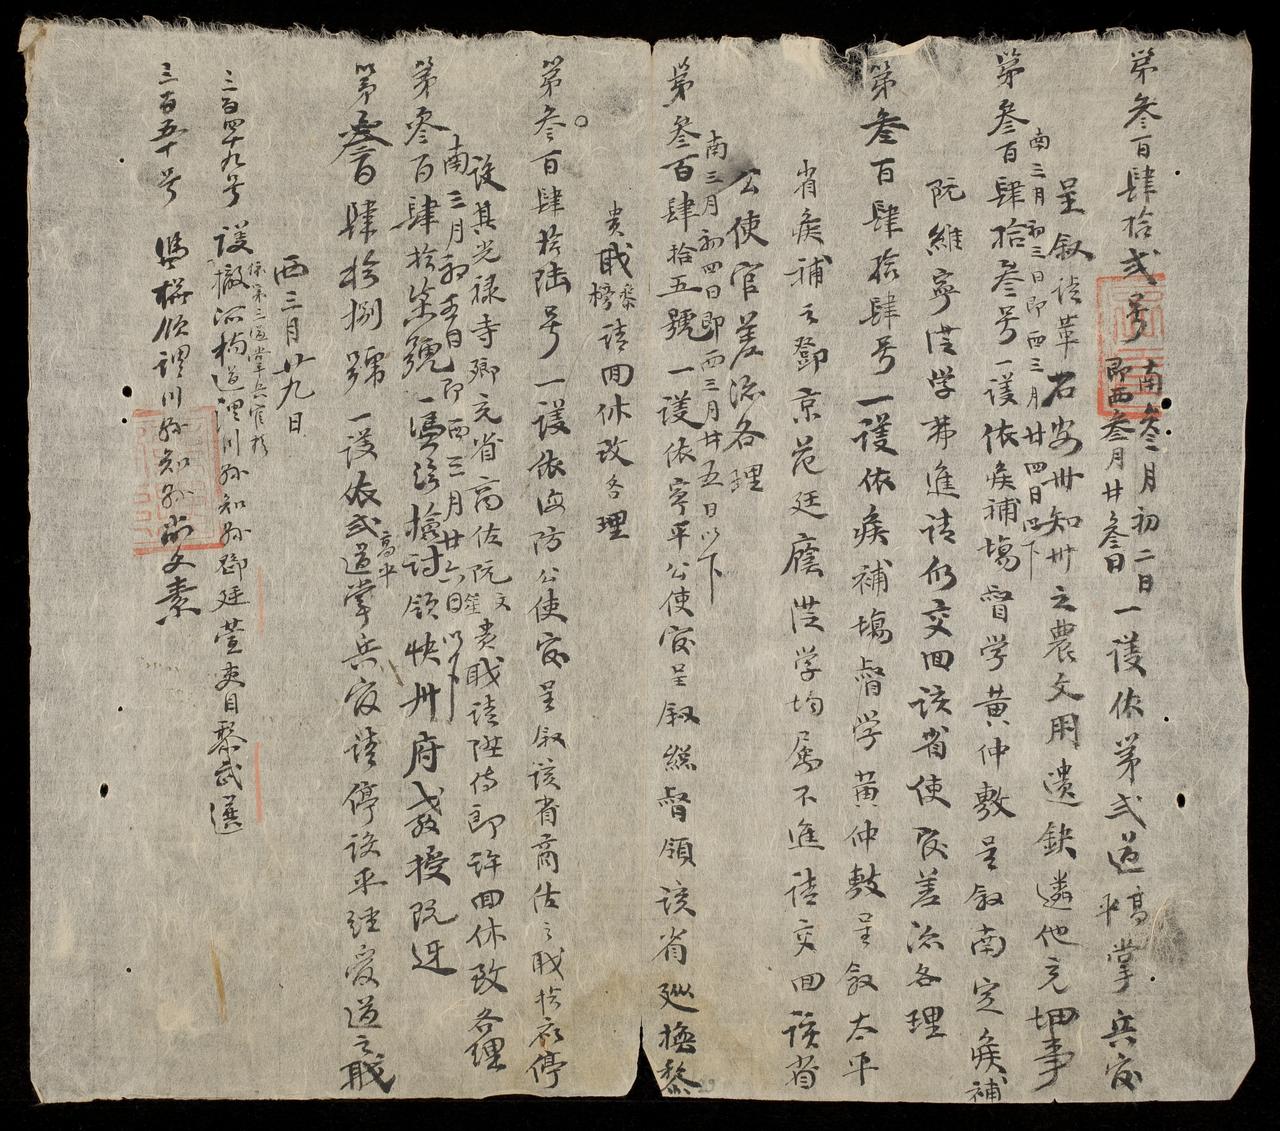 第叁百肆拾弍号 南叁月初二日 即西叁月廿叁日 一護依第弍道 高平 掌兵官
呈叙請革石安州知州之農文用遺缺遴他充坤事
南三月初三日即西三月廿四日以下
第叁百肆拾叁号一護依候補塲督学黄仲敷呈叙南定候補
阮維寧從学弗進請仍交回该省使官差派各理
第叁百肆拾肆号一護依候補塲督学黄仲敷呈叙太平
省候補之鄧京范廷廕從学均属不進請交回该省
公使官差派各理
南三月初四日即西三月廿五日以下
第叁百肆拾五號一護依寧平公使官呈叙總督領该省廵撫黎
贵戝 黎榜 請回休致各理
第叁百肆拾陆号一護依海防公使官呈叙该省商佐之戝拾衣停
设其光禄寺卿充省商佐阮 文 贵戝請陞侍郎許回休致各理
南三月初五日即西三月廿六日以下
第叁百肆拾柒號一馮 檢討領快州府教授阮迓
第叁百肆拾捌號一護依弍道 高平 掌兵官請停设平经愛道之戝
西三月廿九日
三百四十九号 護撤 道 川县知县鄧廷萱吏目黎武選
依第三道掌兵官於
三百五十号 馮 川县知县 文素